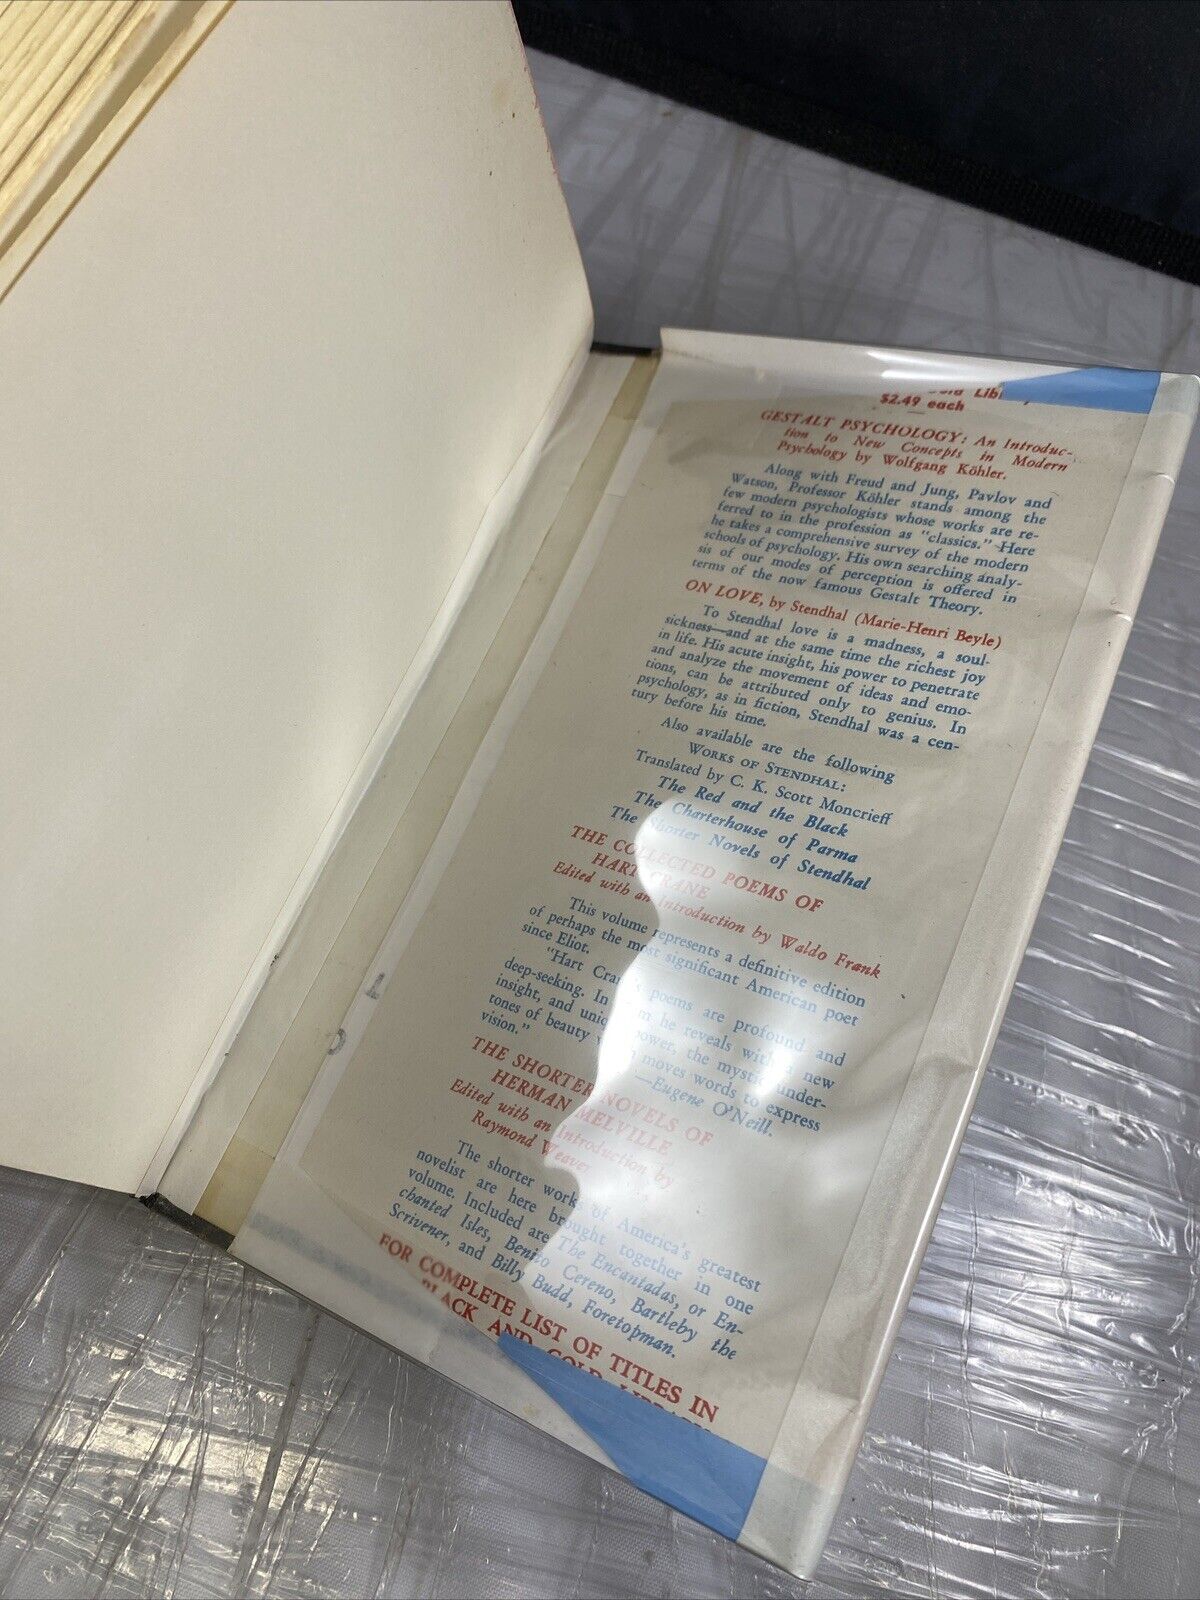 $2.49 each
GESTALT PSYCHOLOGY: An Introduc-
tion to New Concepts in Modern
Psychology by Wolfgang Köhler.
Along with Freud and Jung, Pavlov and
Watson, Professor Köhler stands among the
few modern psychologists whose works are re-
ferred to in the profession as "classics." Here
he takes a comprehensive survey of the modern
schools of psychology. His own searching analy-
sis of our modes of perception is offered in
terms of the now famous Gestalt Theory.
ON LOVE, by Stendhal (Marie-Henri Beyle)
To Stendhal love is a madness, a soul-
sickness—and at the same time the richest joy
in life. His acute insight, his power to penetrate
and analyze the movement of ideas and emo-
tions, can be attributed only to genius. In
psychology, as in fiction, Stendhal was a cen-
tury before his time.
Also available are the following
WORKS OF STENDHAL:
Translated by C. K. Scott Moncrieff
The Red and the Black
The Charterhouse of Parma
The Shorter Novels of Stendhal
THE COLLECTED POEMS OF
HART CRANE
Edited with an Introduction by Waldo Frank
This volume represents a definitive edition
of perhaps the most significant American poet
since Eliot.
"Hart Crane's poems are profound and
deep-seeking. In them he reveals with a new
insight, and unique power, the mystic under-
tones of beauty which moves words to express
vision." —Eugene O'Neill.
THE SHORTER NOVELS OF
HERMAN MELVILLE
Edited with an Introduction by
Raymond Weaver
The shorter works of America's greatest
novelist are here brought together in one
volume. Included are The Encantadas, or En-
chanted Isles, Benito Cereno, Bartleby the
Scrivener, and Billy Budd, Foretopman.
FOR COMPLETE LIST OF TITLES IN
BLACK AND GOLD